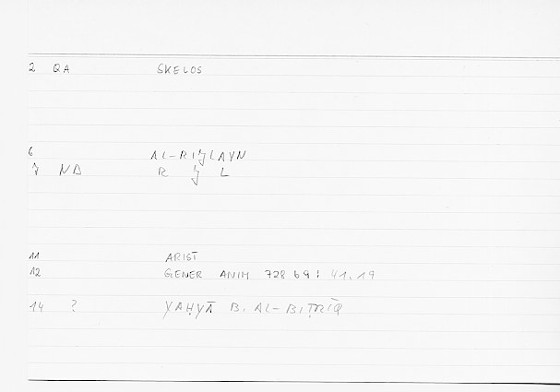 2 QA SKELOS
6 AL-RIǦLAYN
7 ND R Ǧ L
11 ARIST
12 GENER ANIM 728 b9: 41.19
14 ? YAḤYĀ B. AL-BIṬRĪQ